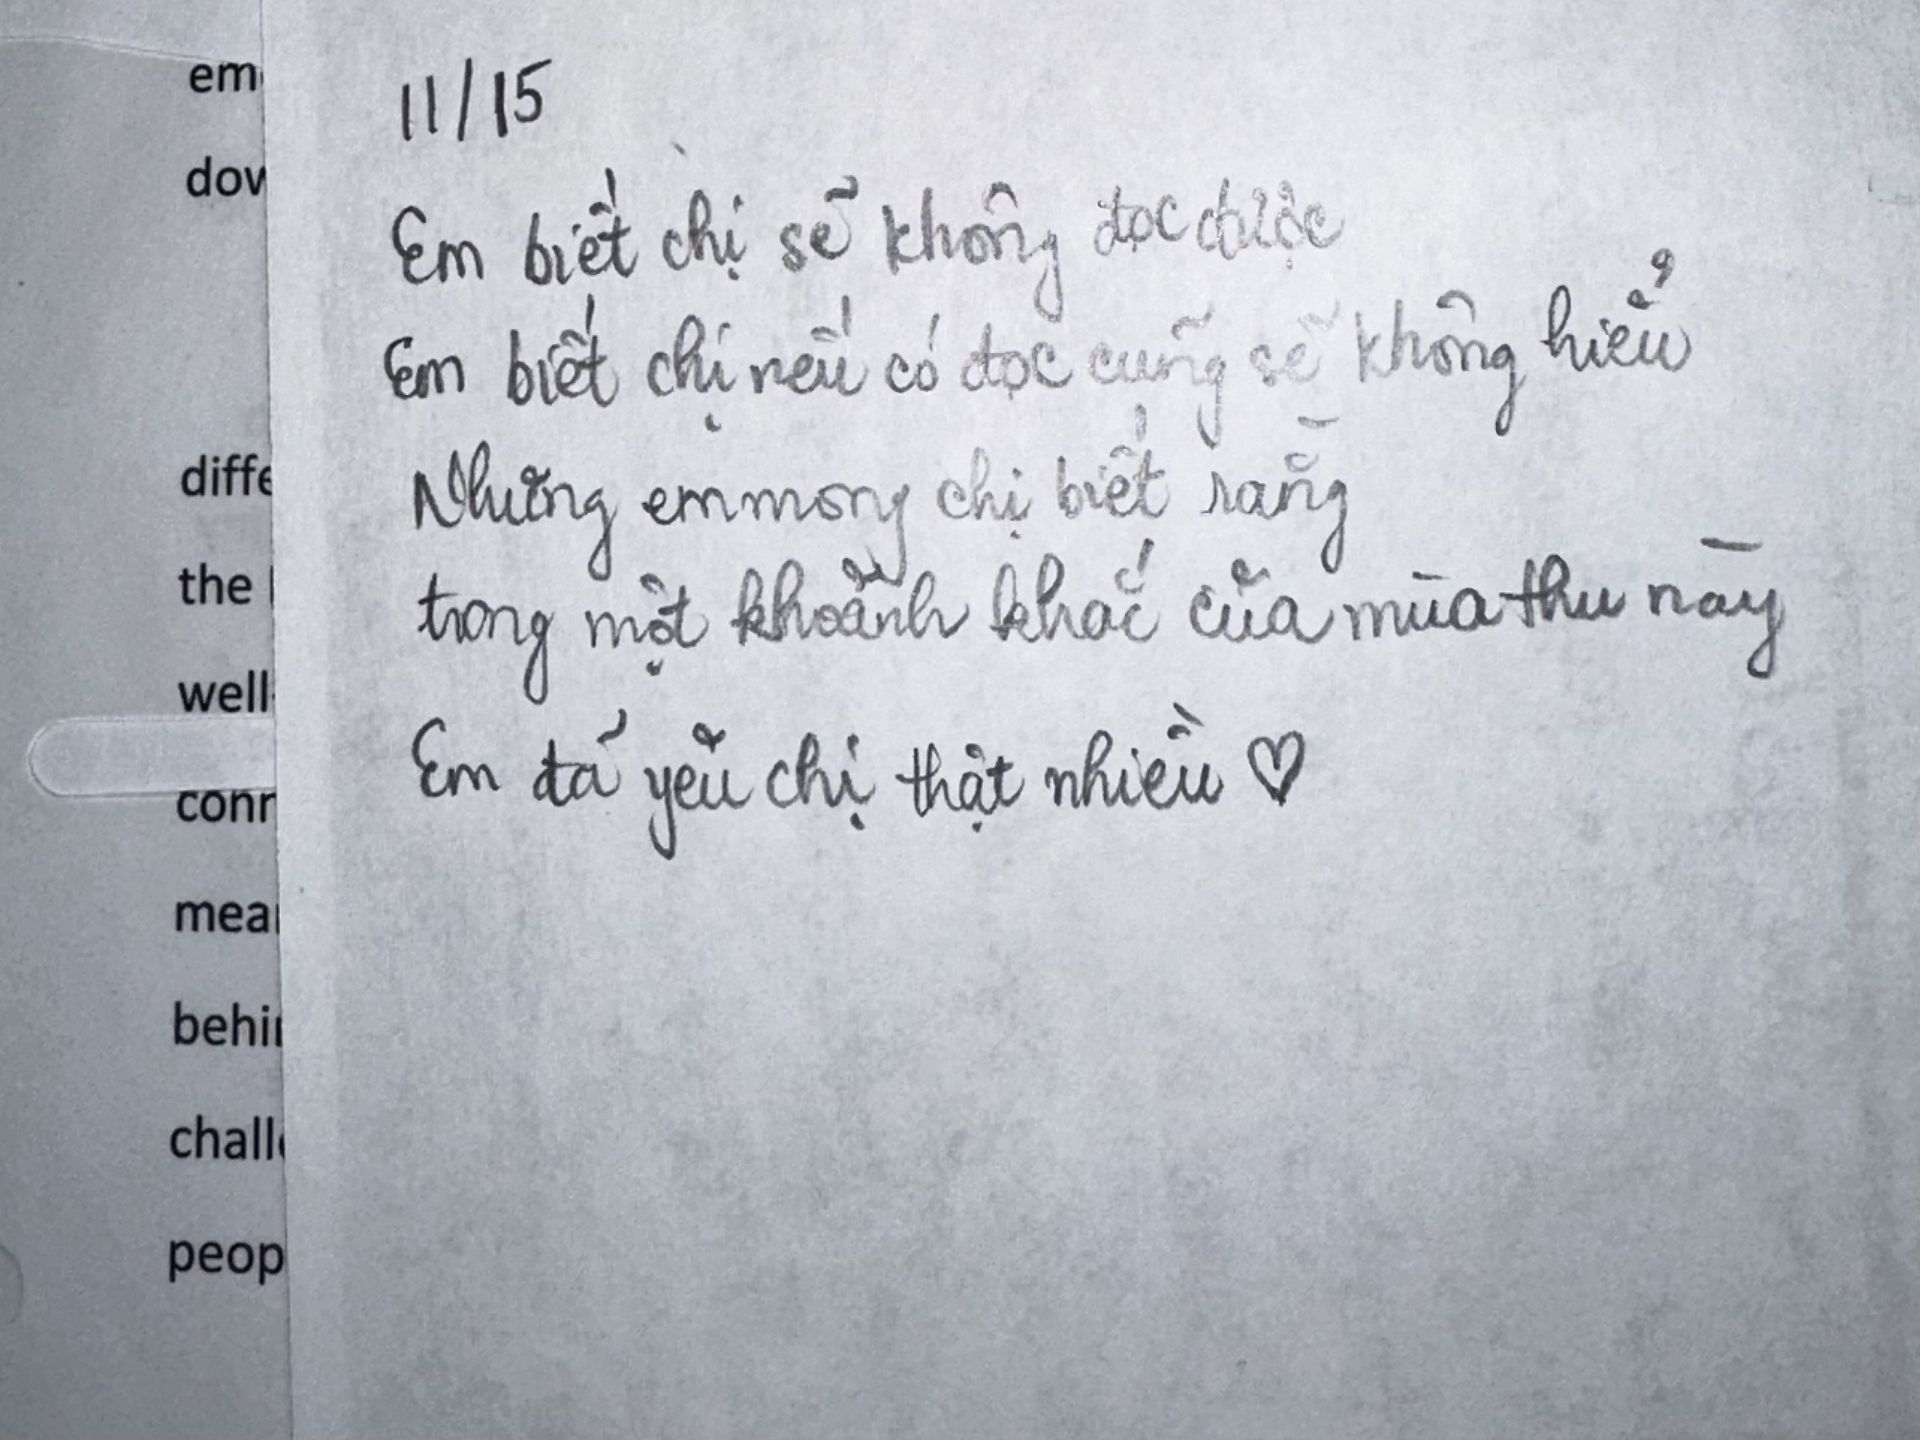 em
dow
diffe
the
well-
conn
mea
behi
chall
peop
11/15
Em biết chị sẽ không đọc được
Em biết chị nếu có đọc cũng sẽ không hiểu
Nhưng em mong chị biết rằng
trong một khoảnh khắc của mùa thu này
Em đã yêu chị thật nhiều ♡